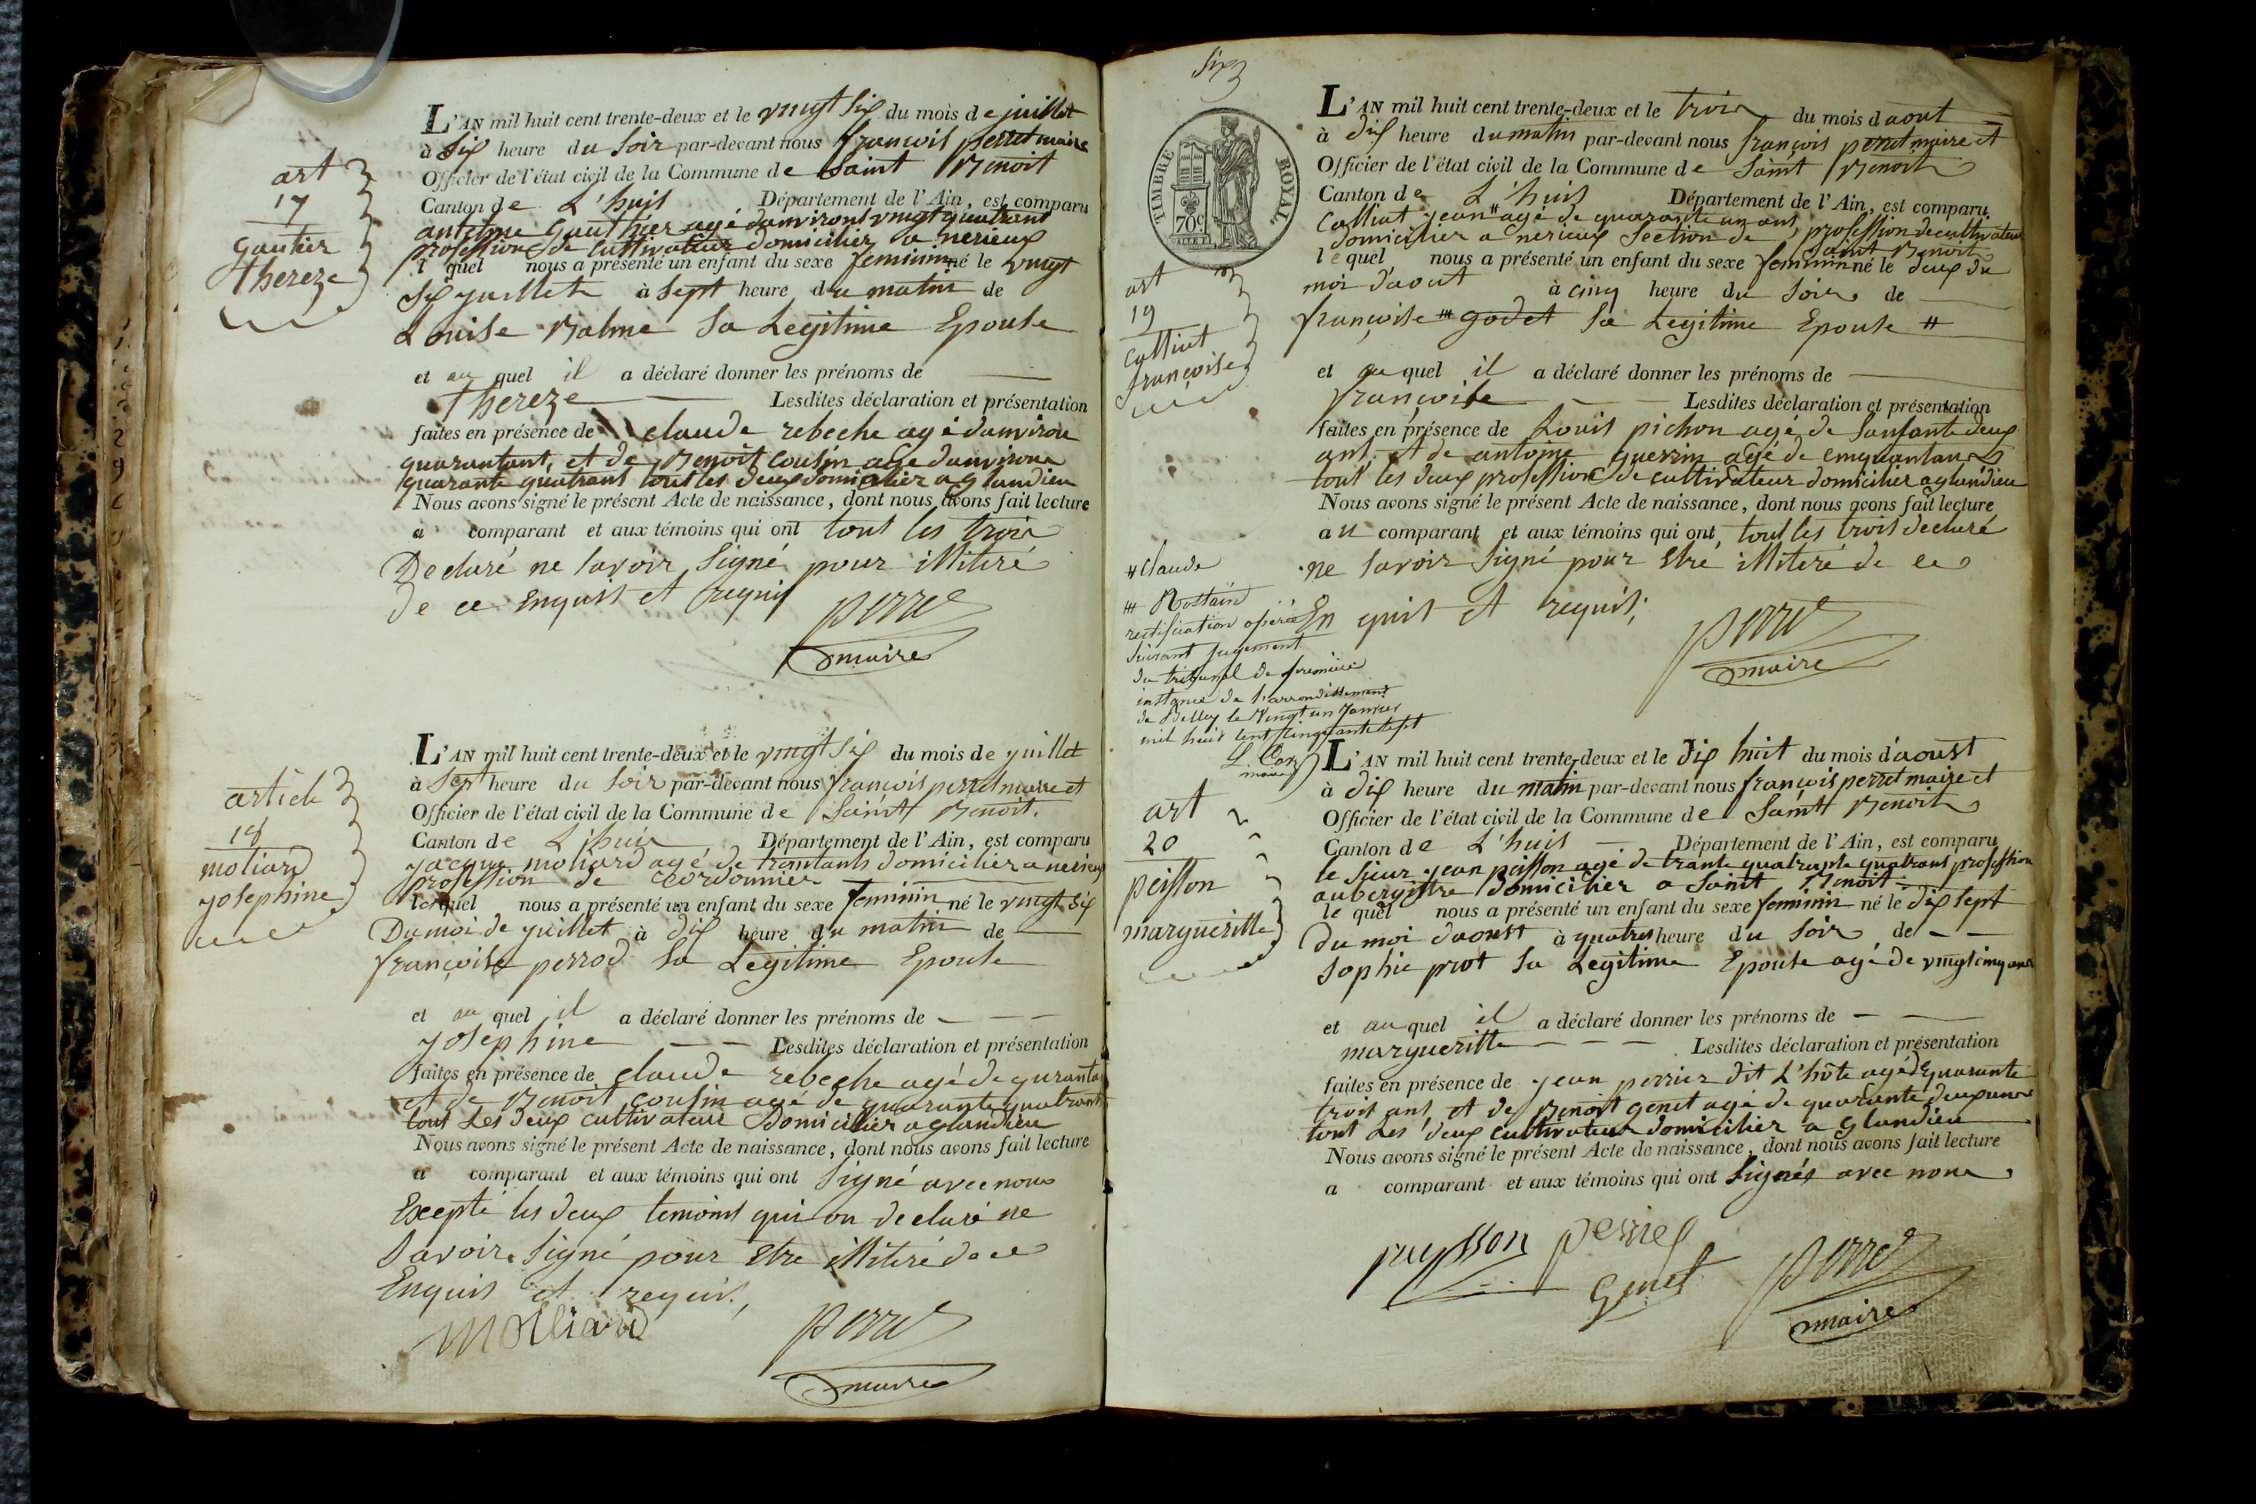 art
17
gautier
thereze
L'AN mil huit cent trente-deux et le vingt six du mois de juillet
à six heure du soir par-devant nous françois perret maire
Officier de l'état civil de la Commune de Saint Benoit
Canton de L'huis Département de l'Ain, est comparu
antelme Gauthier agé danviront vingt quatrant
profession de cultivateur domicilier a nerieux
lequel nous a présenté un enfant du sexe feminin né le vingt
six juillet à sept heure du matin de
Louise Balme sa Legitime Epouse
et au quel il a déclaré donner les prénoms de
thereze Lesdites déclaration et présentation
faites en présence de claude rebeche agé danviron
quarantant, et de Benoit cousin agé danviron
quarante quatrant tout les deux domicilier a glandieu
Nous avons signé le présent Acte de naissance, dont nous avons fait lecture
a comparant et aux témoins qui ont tout les trois
Declaré ne savoir signé pour illitiré
De ce Enquist et requis
perret
maire
article
18
moliard
josephine
L'AN mil huit cent trente-deux et le vingt six du mois de juillet
à sept heure du soir par-devant nous françois perret maire et
Officier de l'état civil de la Commune de Saint Benoit.
Canton de L'huis Département de l'Ain, est comparu
jacque moliard agé de trantants domicilier a nerieux
profession de cordonnier
lequel nous a présenté un enfant du sexe feminin né le vingt six
Du moi de juillet à dix heure du matin de
françoise perrod sa Legitime Epouse
et au quel il a déclaré donner les prénoms de
josephine Lesdites déclaration et présentation
faites en présence de claude rebeche agé de quranta
et de Benoit cousin agé de quarante quatrant
tout Les deux cultivateur Domicilier a glandieu
Nous avons signé le présent Acte de naissance, dont nous avons fait lecture
a comparant et aux témoins qui ont signé avec nous
Excepté les deux temoint qui on declaré ne
savoir signé pour Etre illitiré de ce
Enquis et requis,
Molliard
perret
maire
six
TIMBRE ROYAL
70c
art
19
colliut
françoise
L'AN mil huit cent trente-deux et le trois du mois daout
à dix heure du matin par-devant nous françois perret maire et
Officier de l'état civil de la Commune de Saint Benoit
Canton de L'huis Département de l'Ain, est comparu
colliut jean # agé de quarante un ans, profession de cultivateur
domicilier a nerieux section de saint Benoit
lequel nous a présenté un enfant du sexe feminin né le deux du
moi d'aout à cinq heure du soir de
françoise # godet sa Legitime Epouse #
et au quel il a déclaré donner les prénoms de
françoise Lesdites déclaration et présentation
faites en présence de Louis pichon agé de sansante deux
ant. et de antoine guerrin agé de cinquantans
tout les deux profession de cultivateur domicilier a glandieu
Nous avons signé le présent Acte de naissance, dont nous avons fait lecture
au comparant et aux témoins qui ont, tout les trois declaré
ne savoir signé pour Etre illitiré de ce
En quit et requis;
perret
maire
# claude
# Rostaind
rectification opérée
suivant jugement
du tribunal de première
instance de l'arrondissement
de Belley le vingt un Janvier
mil huit cent cinquante sept
maire
art
20
peisson
margueritte
L'AN mil huit cent trente-deux et le dix huit du mois d'aoust
à dix heure du matin par-devant nous françois perret maire et
Officier de l'état civil de la Commune de Saint Benoit
Canton de L'huis Département de l'Ain, est comparu
le sieur jean peisson agé de trante quatrante quatrans profession
aubergistre domicilier a Saint Benoit
lequel nous a présenté un enfant du sexe feminin né le dix sept
du moi daoust à quatres heure du soir de
sophie prot sa Legitime Epouse agé de vingt cinq ans
et au quel il a déclaré donner les prénoms de
margueritte Lesdites déclaration et présentation
faites en présence de jean perrier dit L'hôte agé de quarante
trois ans, et de Benoit genet agé de quarante deux ans
tout Les deux cultivateur domicilier a glandieu
Nous avons signé le présent Acte de naissance, dont nous avons fait lecture
a comparant et aux témoins qui ont signés avec nous
puysson perrier
Genet perret
maire